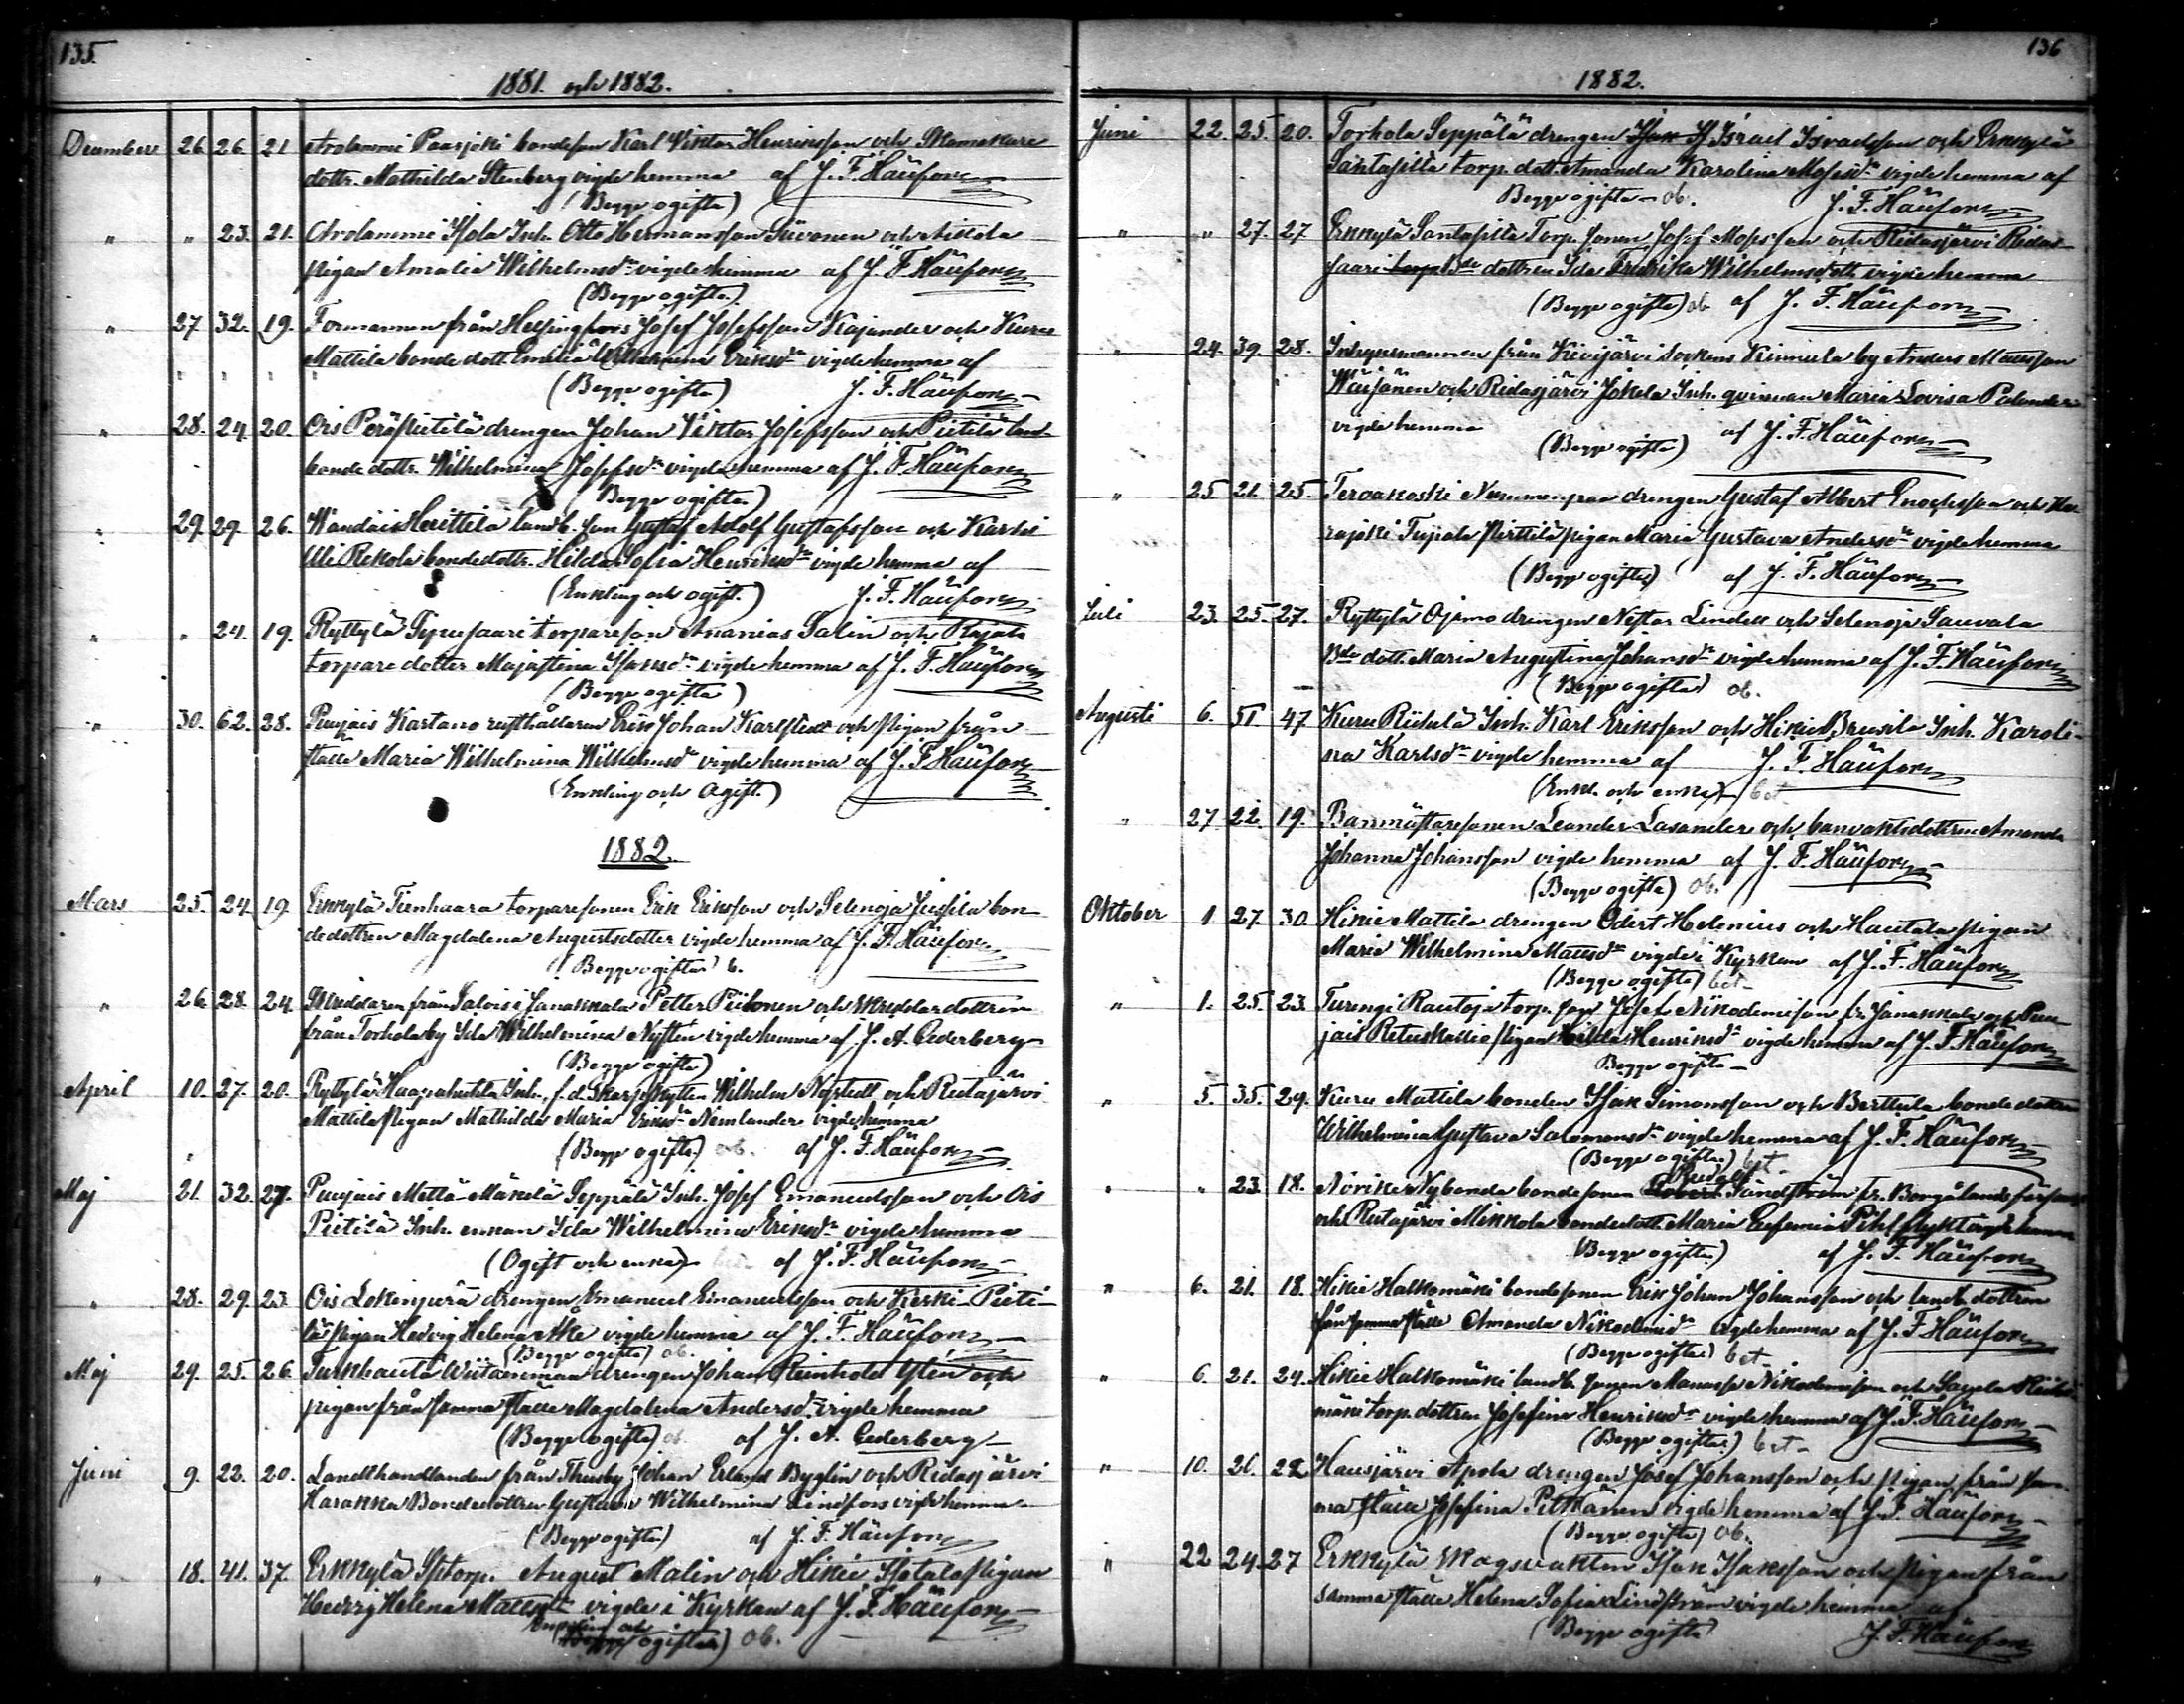 135.
1881. och 1882.
December 26 26 21 Arolammi Paasjoki bondeson Karl Viktor Henriksson och Skomakare
dottr. Mathilda Stenberg vigde hemma af J. F. Häüfors
(Begge ogifta)
" " 23. 21. Arolammi Isola Inh. Otto Hermansson Siivonen och Aittola
pigan Amalia Wilhelmsdr vigde hemma af J. F. Häüfors
(Begge ogifta)
" 27 32. 19. Formannen från Helsingfors Josef Josefsson Kajander och Kuru
Mattila bonde dott. Emilia Wilhelmina Eriksdr vigde hemma af
(Begge ogifta) J. F. Häüfors
" 28. 24. 20. Ois Peräpietilä drengen Johan Viktor Josefsson och Pietilä land-
bonde dottr. Wilhelmina Josefsdr vigde hemma af J. F. Häüfors
Begge ogifta)
" 29. 29. 26. Herittilä landb. son Gustaf Adolf Gustafsson och Karhi
Uli Rekola bondedottr. Hilda Sofia Henriksdr vigde hemma af
(Enkling och ogift.) J. F. Häüfors
" " 24. 19. Ryttylä torpareson Ananias Salin och Rajala
torpare dotter Majastina Isaksdr vigde hemma af J. F. Häüfors
(Begge ogifta)
" 30. 62. 28. Puujais Kartano rusthållaren Erik Johan Karlstedt och pigan från
ställe Maria Wilhelmina Wilhelmsdr vigde hemma af J. F. Häüfors
(Enkling och ogift.)
1882.
Mars 25. 24. 19. Erkkylä Tienhaara torparesonen Erik Eriksson och Selenoja Jussila bon-
dedottren Magdalena Augustsdotter vigde hemma af J. F. Häüfors
Begge ogifta) b.
" 26. 28. 24. Skreddaren från Salois i Janakkala Petter Piilonen och skreddardottren
från Torhola by Ida Wilhelmina Nyttén vigde hemma af J. A. Cederberg
(Begge ogifta)
April 10. 27. 20. Ryttylä Haapahuhta Inh. f. d. Skarpskytten Wilhelm Nystedt och Ridasjärvi
Mattila pigan Mathilda Maria Eriksdr Nemlander vigde hemma
(Begge ogifta.) ob. af J. F. Häüfors
Maj 21. 32. 27. Puujais Mettä-Mäkelä Seppälä Inh. Josef Emanuelsson och Ois
Pietilä Inh. enkan Ida Wilhelmina Eriksdr vigde hemma
(Ogift och enka) af J. F. Häüfors
" 28. 29. 23. Ois Lekinjurä drengen Emanuel Emanuelsson och Keski-Pieti-
lä pigan Hedvig Helena Ake vigde hemma af J. F. Häüfors
(Begge ogifta) ob.
Maj 29. 25. 26. Turkhauta drengen Johan Reinhold Glén och
pigan från samma ställe Magdalena Andersdr vigde hemma
(Begge ogifta) ob. af J. A. Cederberg
Juni 9. 22. 20. Landthandlanden från Thusby Johan Erland Byglin och Ridasjärvi
Harakka Bondedottren Gustava Wilhelmina Lindfors vigde hemma
(Begge ogifta) af J. F. Häüfors
" 18. 41. 37. Erkkylä Sptorp. August Malin och Hikie pigan
Hedvig Helena vigde i Kyrkan af J. F. Häüfors
Enkling och
ogifta) ob.
136
1882.
Juni 22. 25. 20. Torhola Seppälä drengen Israel Israelsson och Erkkylä
Santasilta torp. dott. Amanda Karolina Mosisdr vigde hemma af
Begge ogifta – ob. J. F. Häüfors
" " 27. 27 Erkkylä Santasilta Torp. sonen Josef Mosisson och Ridasjärvi Ridas-
saari Bde dottren Ida Fredrika Wilhelmsdott. vigde hemma
(Begge ogifta) ob af J. F. Häüfors
" 24. 39. 28. Inhysesmannen från Kivijärvi sockens Kinnula by Anders Mattsson
Wäisänen och Ridasjärvi Jokela Inh. qvinnan Maria Lovisa Palander
vigde hemma (Begge ogifta) af J. F. Häüfors
" 25 21. 25. Tervakoski drengen Gustaf Albert Enochsson och Ha-
rajoki Tupala Perttilä pigan Maria Gustava Andersdr vigde hemma
(Begge ogifta) af J. F. Häüfors
Juli 23. 25. 27. Ryttylä Ojamo drengen Neftar Lindell och Selenoja Sauvala
Bde dott. Maria Augustina Johansdr vigde hemma af J. F. Häüfors
(Begge ogifta) ob.
Augusti 6. 51 47 Kuru Riihelä Inh. Karl Eriksson och Hikie Brusila Inh. Karoli-
na Karlsdr vigde hemma af J. F. Häüfors
(Enkl. och enka) bet
" 27 22. 19. Banmästaresonen Leander Lasander och banvaktsdottren Amanda
Johanna Johansson vigde hemma af J. F. Häüfors
(Begge ogifta) ob.
Oktober 1 27. 30. Hikie Mattila drengen Odert Helenius och Hautala pigan
Maria Wilhelmina Mattsdr vigde i Kyrkan af J. F. Häüfors
(Begge ogifta) bet
" 1. 25. 23. Turengi Rautoja torp. son Josef Nikodemisson fr. Janakkala och Puu-
jais Retuskallio pigan Hilda Henriksdr vigde hemma af J. F. Häüfors
Begge ogifta –
" 5. 35. 29. Kuru Mattila bonden Isak Simonsson och Berttula bondedottren
Wilhelmina Gustava Salomonsdr vigde hemma af J. F. Häüfors
(Begge ogifta.) bet
" " 23. 18. Nybonda bondesonen Rudolf Sundström fr. Borgå landsförsaml.
och Ridasjärvi Mikkola bondedott. Maria Eufemia vigde hemma
(Begge ogifta) af J. F. Häüfors
" 6. 21. 18. Hikie Halkomäki bondesonen Erik Johan Johansson och landb. dottren
från samma ställe Amanda Nikodemidr vigde hemma af J. F. Häüfors
(Begge ogifta) bet
" 6. 21. 24. Hikie Halkomäki landb. sonen Manasse Nikodemisson och
mäki torp. dottren Josefina Henriksdr vigde hemma af J. F. Häüfors
(Begge ogifta) bet
" 10. 26. 22 Hausjärvi Apola drengen Josef Johansson och pigan från sam-
ma ställe Josefina Pitkänen vigde hemma af J. F. Häüfors
(Begge ogifta) ob.
" 22 24. 27 Erkkylä Skogsvakten Isak Isaksson och pigan från
samma ställe Helena Sofia Lindström vigde hemma af
(Begge ogifta) J. F. Häüfors